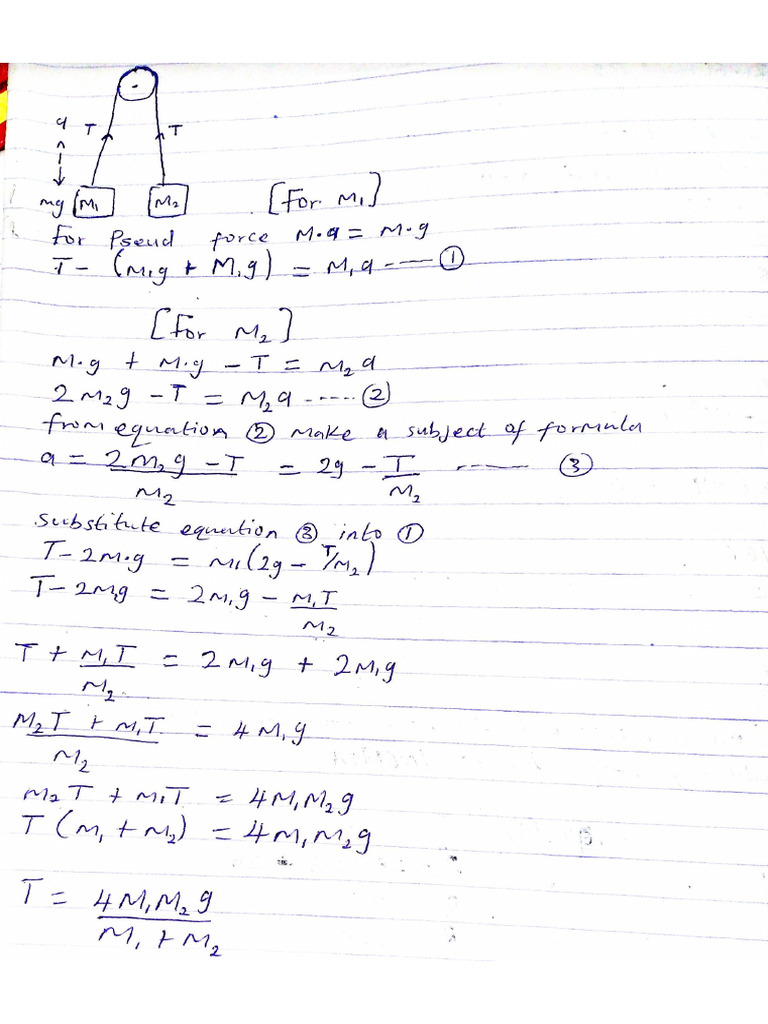 a T T
mg M₁ M₂ [for M₁]
for Pseud force M·a = M·g
T - (M₁g + M₁g) = M₁a ---- ①
[for M₂]
M·g + M·g - T = M₂a
2M₂g - T = M₂a ----- ②
from equation ② make a subject of formula
a = 2M₂g - T / M₂ = 2g - T / M₂ ------ ③
substitute equation ③ into ①
T - 2M·g = M₁(2g - T/M₂)
T - 2M₁g = 2M₁g - M₁T / M₂
T + M₁T / M₂ = 2M₁g + 2M₁g
M₂T + M₁T / M₂ = 4M₁g
M₂T + M₁T = 4M₁M₂g
T(M₁ + M₂) = 4M₁M₂g
T = 4M₁M₂g / M₁ + M₂